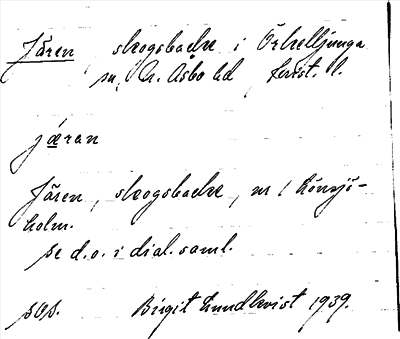 Jären, skogsbacke i Örkelljunga
sn, N. Åsbo hd, Krist. l.
jæran
Jären, skogsbacke, nr 1 Rönnjö-
holm.
se d.o. i dial. saml.
sOs. Birgit Lundkvist 1939.